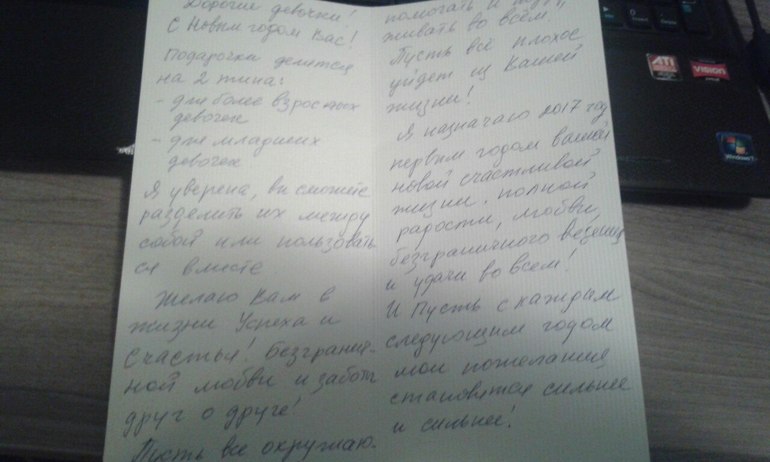 Дорогие девочки!
С Новым годом Вас!
Подарочки делятся
на 2 типа:
- для более взрослых
девочек
- для младших
девочек
Я уверена, вы сможете
разделить их между
собой или пользовать
ся вместе
Желаю Вам в
жизни Успеха и
Счастья! Безгранич-
ной любви и заботы
друг о друге!
Пусть все окружаю.
помогать и
живать во всём.
Пусть всё плохое
уйдет из Вашей
жизни!
Я назначаю 2017 год
первым годом вашей
новой счастливой
жизни. полной
радости, любви,
безграничного везения
и удачи во всем!
И Пусть с каждым
следующим годом
мои пожелания
становятся сильнее
и сильнее!
ATI
VISION
Windows 7